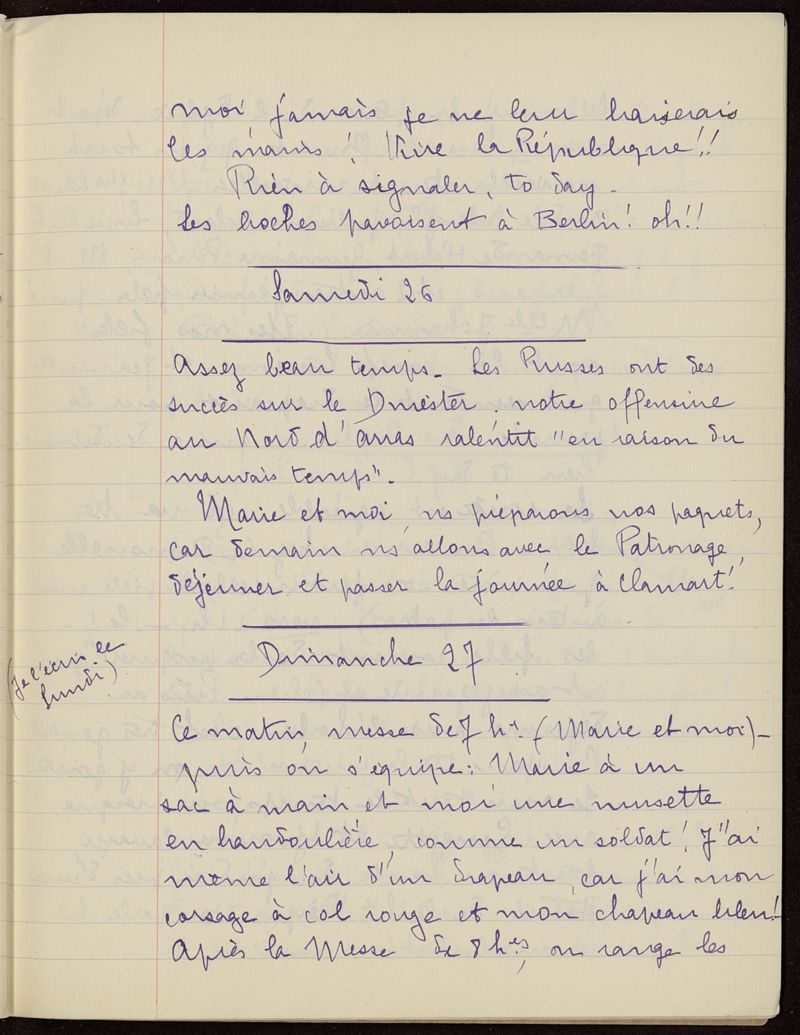 moi jamais je ne leur baiserais
les mains ! Vive la République !!
Rien à signaler, to day -
Les boches pavoisent à Berlin ! oh !!
Samedi 26
Assez beau temps - Les Russes ont des
succès sur le Dniester. notre offensive
au Nord d'arras ralentit "en raison du
mauvais temps" -
Marie et moi, ns préparons nos paquets,
car demain ns allons avec le Patronage,
déjeuner et passer la journée à Clamart !
Dimanche 27
(Je l'écris ce
lundi)
Ce matin, messe de 7 hs (Marie et moi) -
puis on s'équipe : Marie à un
sac à main et moi une musette
en bandoulière, comme un soldat ! J'ai
même l'air d'un drapeau, car j'ai mon
corsage à col rouge et mon chapeau bleu !
Après la Messe de 8 hes, on range les